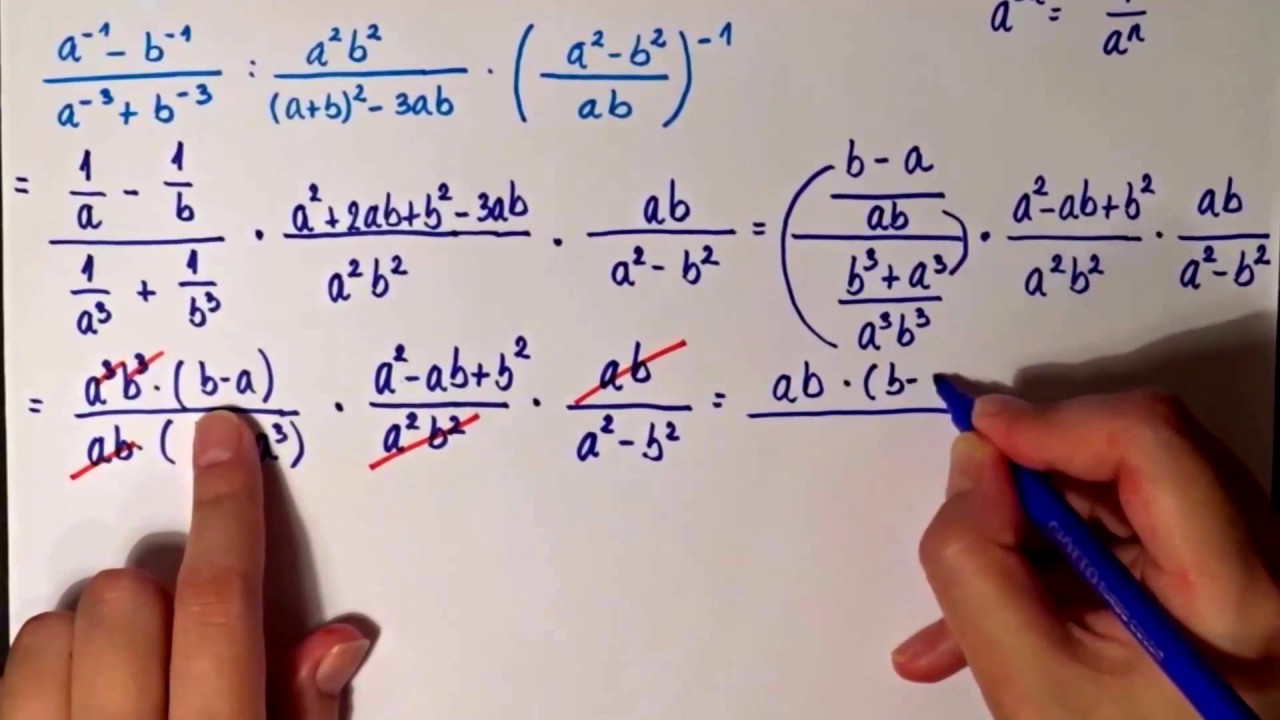 a⁻ⁿ = 1/aⁿ
(a⁻¹ - b⁻¹)/(a⁻³ + b⁻³) : a²b²/((a+b)² - 3ab) · ((a² - b²)/ab)⁻¹
= (1/a - 1/b)/(1/a³ + 1/b³) · (a² + 2ab + b² - 3ab)/(a²b²) · ab/(a² - b²) = ((b - a)/ab)/((b³ + a³)/(a³b³)) · (a² - ab + b²)/(a²b²) · ab/(a² - b²)
= a³b³ · (b - a)/ab ( a³) · (a² - ab + b²)/(a²b²) · ab/(a² - b²) = ab · (b -